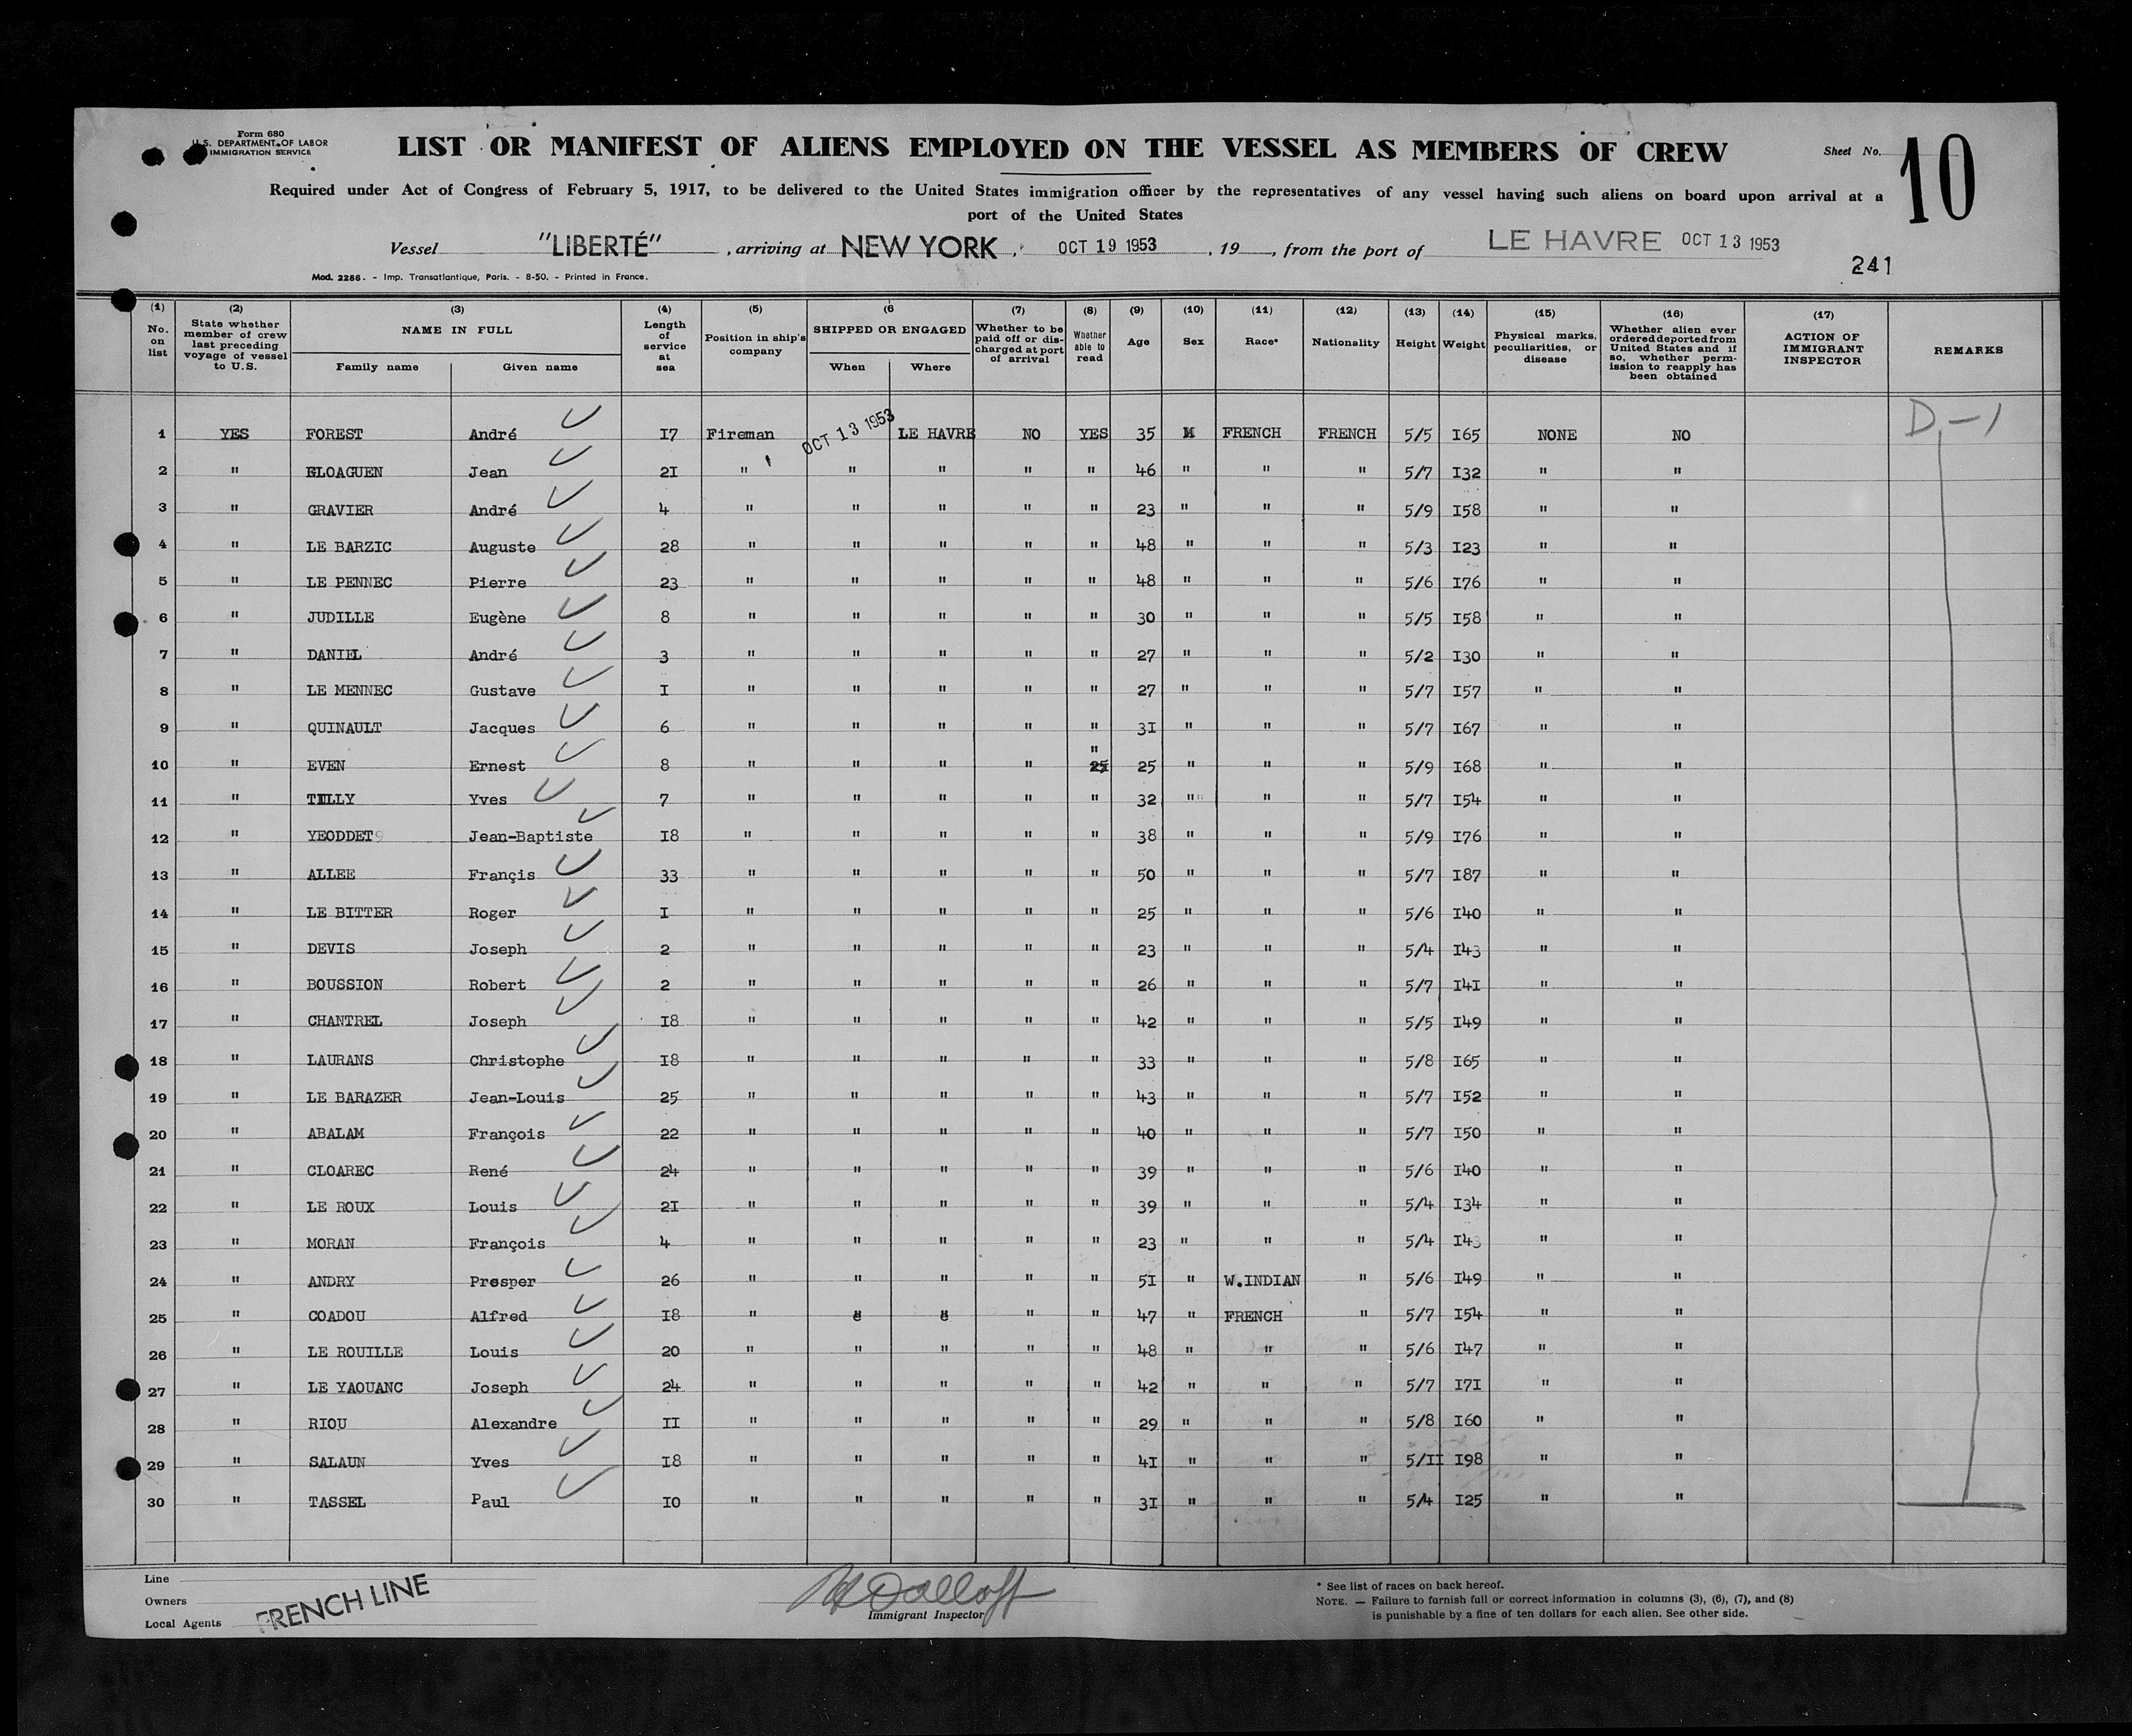 Form 680
U.S. DEPARTMENT OF LABOR
IMMIGRATION SERVICE
LIST OR MANIFEST OF ALIENS EMPLOYED ON THE VESSEL AS MEMBERS OF CREW
Sheet No. 10
Required under Act of Congress of February 5, 1917, to be delivered to the United States immigration officer by the representatives of any vessel having such aliens on board upon arrival at a
port of the United States
Vessel "LIBERTÉ", arriving at NEW YORK, OCT 19 1953, 19, from the port of LE HAVRE OCT 13 1953
241
Mod. 2286. - Imp. Transatlantique, Paris. - 8-50. - Printed in France.
(1) No. on list (2) State whether member of crew last preceding voyage of vessel to U.S. (3) NAME IN FULL Family name Given name (4) Length of service at sea (5) Position in ship's company (6 SHIPPED OR ENGAGED When Where (7) Whether to be paid off or discharged at port of arrival (8) Whether able to read (9) Age (10) Sex (11) Race* (12) Nationality (13) Height (14) Weight (15) Physical marks, peculiarities, or disease (16) Whether alien ever ordered deported from United States and if so, whether permission to reapply has been obtained (17) ACTION OF IMMIGRANT INSPECTOR REMARKS
1 YES FOREST André I7 Fireman OCT 13 1953 LE HAVRE NO YES 35 M FRENCH FRENCH 5/5 I65 NONE NO D-1
2 " ELOAGUEN Jean 2I " " " " " 46 " " " 5/7 I32 " "
3 " GRAVIER André 4 " " " " " 23 " " " 5/9 I58 " "
4 " LE BARZIC Auguste 28 " " " " " 48 " " " 5/3 I23 " "
5 " LE PENNEC Pierre 23 " " " " " 48 " " " 5/6 I76 " "
6 " JUDILLE Eugène 8 " " " " " 30 " " " 5/5 I58 " "
7 " DANIEL André 3 " " " " " 27 " " " 5/2 I30 " "
8 " LE MENNEC Gustave I " " " " " 27 " " " 5/7 I57 " "
9 " QUINAULT Jacques 6 " " " " " 3I " " " 5/7 I67 " "
10 " EVEN Ernest 8 " " " " " 25 25 " " " 5/9 I68 " "
11 " TILLY Yves 7 " " " " " 32 " " " 5/7 I54 " "
12 " YEODDET Jean-Baptiste I8 " " " " " 38 " " " 5/9 I76 " "
13 " ALLEE Françis 33 " " " " " 50 " " " 5/7 I87 " "
14 " LE BITTER Roger I " " " " " 25 " " " 5/6 I40 " "
15 " DEVIS Joseph 2 " " " " " 23 " " " 5/4 I43 " "
16 " BOUSSION Robert 2 " " " " " 26 " " " 5/7 I4I " "
17 " CHANTREL Joseph I8 " " " " " 42 " " " 5/5 I49 " "
18 " LAURANS Christophe I8 " " " " " 33 " " " 5/8 I65 " "
19 " LE BARAZER Jean-Louis 25 " " " " " 43 " " " 5/7 I52 " "
20 " ABALAM François 22 " " " " " 40 " " " 5/7 I50 " "
21 " CLOAREC René 24 " " " " " 39 " " " 5/6 I40 " "
22 " LE ROUX Louis 2I " " " " " 39 " " " 5/4 I34 " "
23 " MORAN François 4 " " " " " 23 " " " 5/4 I43 " "
24 " ANDRY Prosper 26 " " " " " 5I " W.INDIAN " 5/6 I49 " "
25 " COADOU Alfred I8 " " " " " 47 " FRENCH " 5/7 I54 " "
26 " LE ROUILLE Louis 20 " " " " " 48 " " " 5/6 I47 " "
27 " LE YAOUANC Joseph 24 " " " " " 42 " " " 5/7 I7I " "
28 " RIOU Alexandre II " " " " " 29 " " " 5/8 I60 " "
29 " SALAUN Yves I8 " " " " " 4I " " " 5/II I98 " "
30 " TASSEL Paul IO " " " " " 3I " " " 5/4 I25 " "
Line
Owners
Local Agents FRENCH LINE
Immigrant Inspector
* See list of races on back hereof.
NOTE. — Failure to furnish full or correct information in columns (3), (6), (7), and (8)
is punishable by a fine of ten dollars for each alien. See other side.